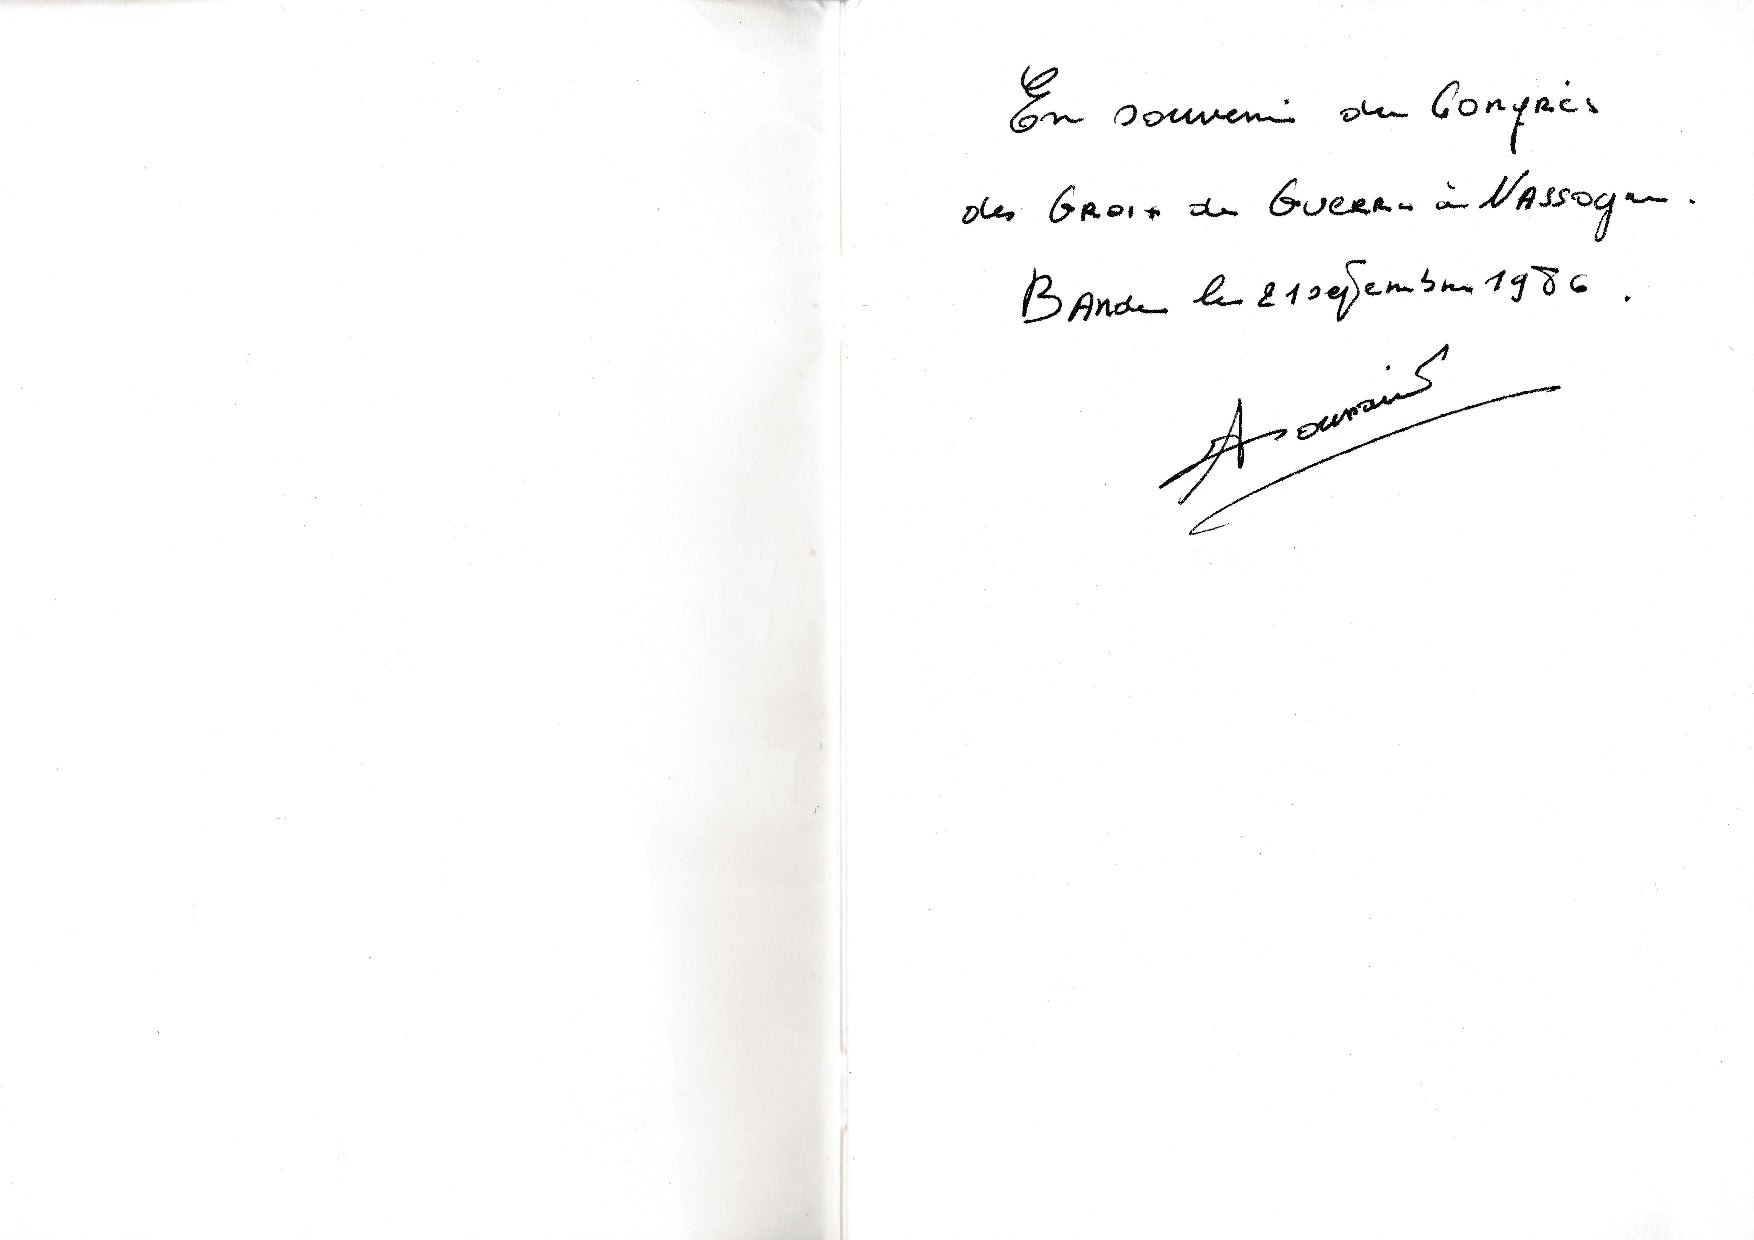 En souvenir du Congrès
des Croix de Guerre à Nassogne.
Bande le 21 septembre 1986.